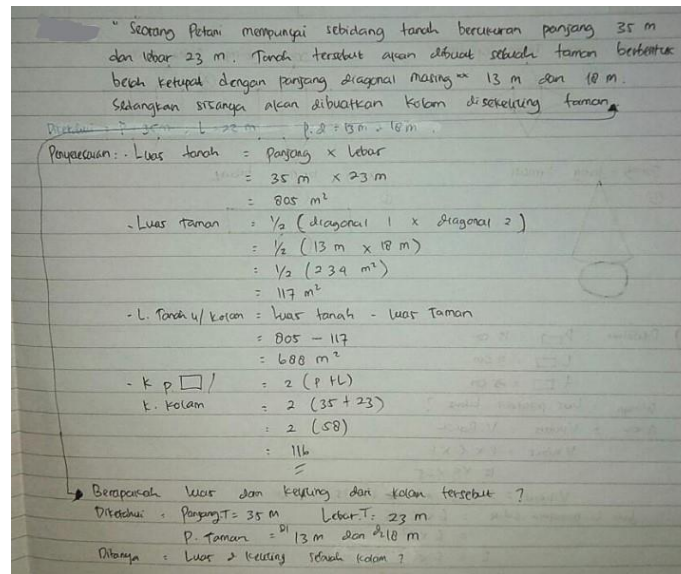 " Seorang Petani mempunyai sebidang tanah berukuran panjang 35 m
dan lebar 23 m. Tanah tersebut akan dibuat sebuah taman berbentuk
belah ketupat dengan panjang diagonal masing" 13 m dan 18 m.
Sedangkan sisanya akan dibuatkan kolam disekeliling taman
Diketahui : P = 35 m, L = 23 m, P.d = 13 m, 18 m.
Penyelesaian : - Luas tanah = Panjang x Lebar
= 35 m x 23 m
= 805 m²
- Luas taman = 1/2 ( diagonal 1 x diagonal 2 )
= 1/2 ( 13 m x 18 m )
= 1/2 ( 234 m² )
= 117 m²
- L. Tanah u/ kolam = Luas tanah - Luas Taman
= 805 - 117
= 688 m²
- K p □ / = 2 ( P + L )
K. Kolam = 2 ( 35 + 23 )
= 2 ( 58 )
= 116
Berapakah luas dan keliling dari kolam tersebut ?
Diketahui : Panjang.T = 35 m Lebar.T : 23 m
P. Taman = D1 13 m dan d2 18 m
Ditanya = Luas & Keliling sebuah kolam ?